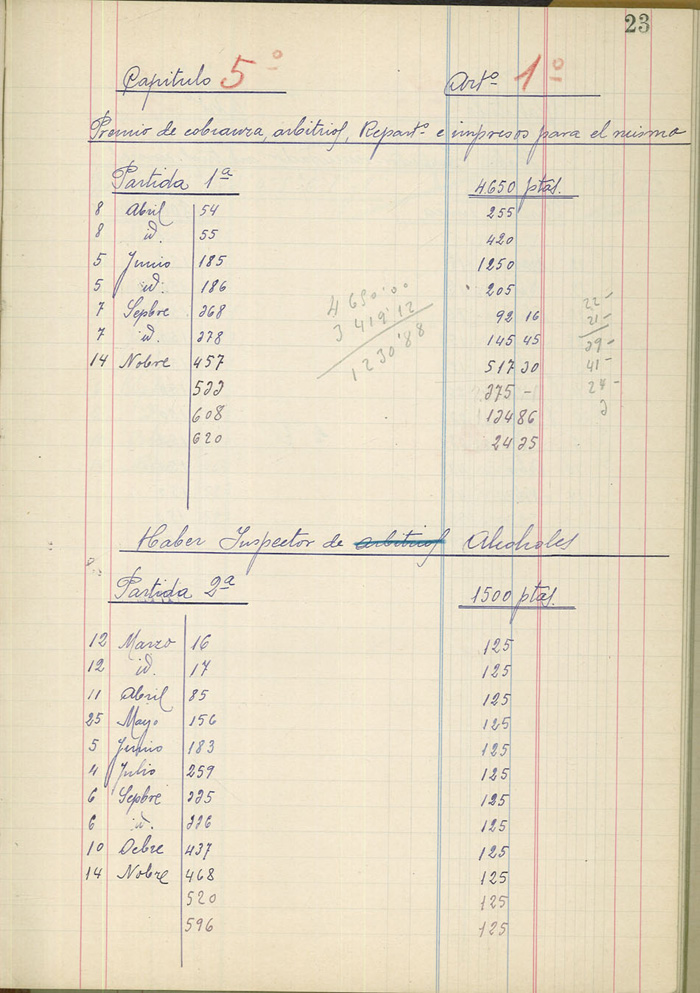 23
Capitulo 5º Artº 1º
Premio de cobranza, arbitrios, Repartº e impresos para el mismo
Partida 1ª 4650 ptas.
8 Abril 54 255
8 id. 55 420
5 Junio 185 1250
5 id. 186 205
7 Sepbre 368 92 16
7 id. 378 145 45
14 Nobre 457 517 30
533 375 -
608 134 86
620 24 35
4650'00
3419'12
1230'88
22-
21-
29-
41-
24-
Haber Inspector de arbitrios Alcoholes
Partida 2ª 1500 ptas.
12 Marzo 16 125
12 id. 17 125
11 Abril 85 125
25 Mayo 156 125
5 Junio 183 125
4 Julio 259 125
6 Sepbre 335 125
6 id. 336 125
10 Ocbre 437 125
14 Nobre 468 125
520 125
596 125